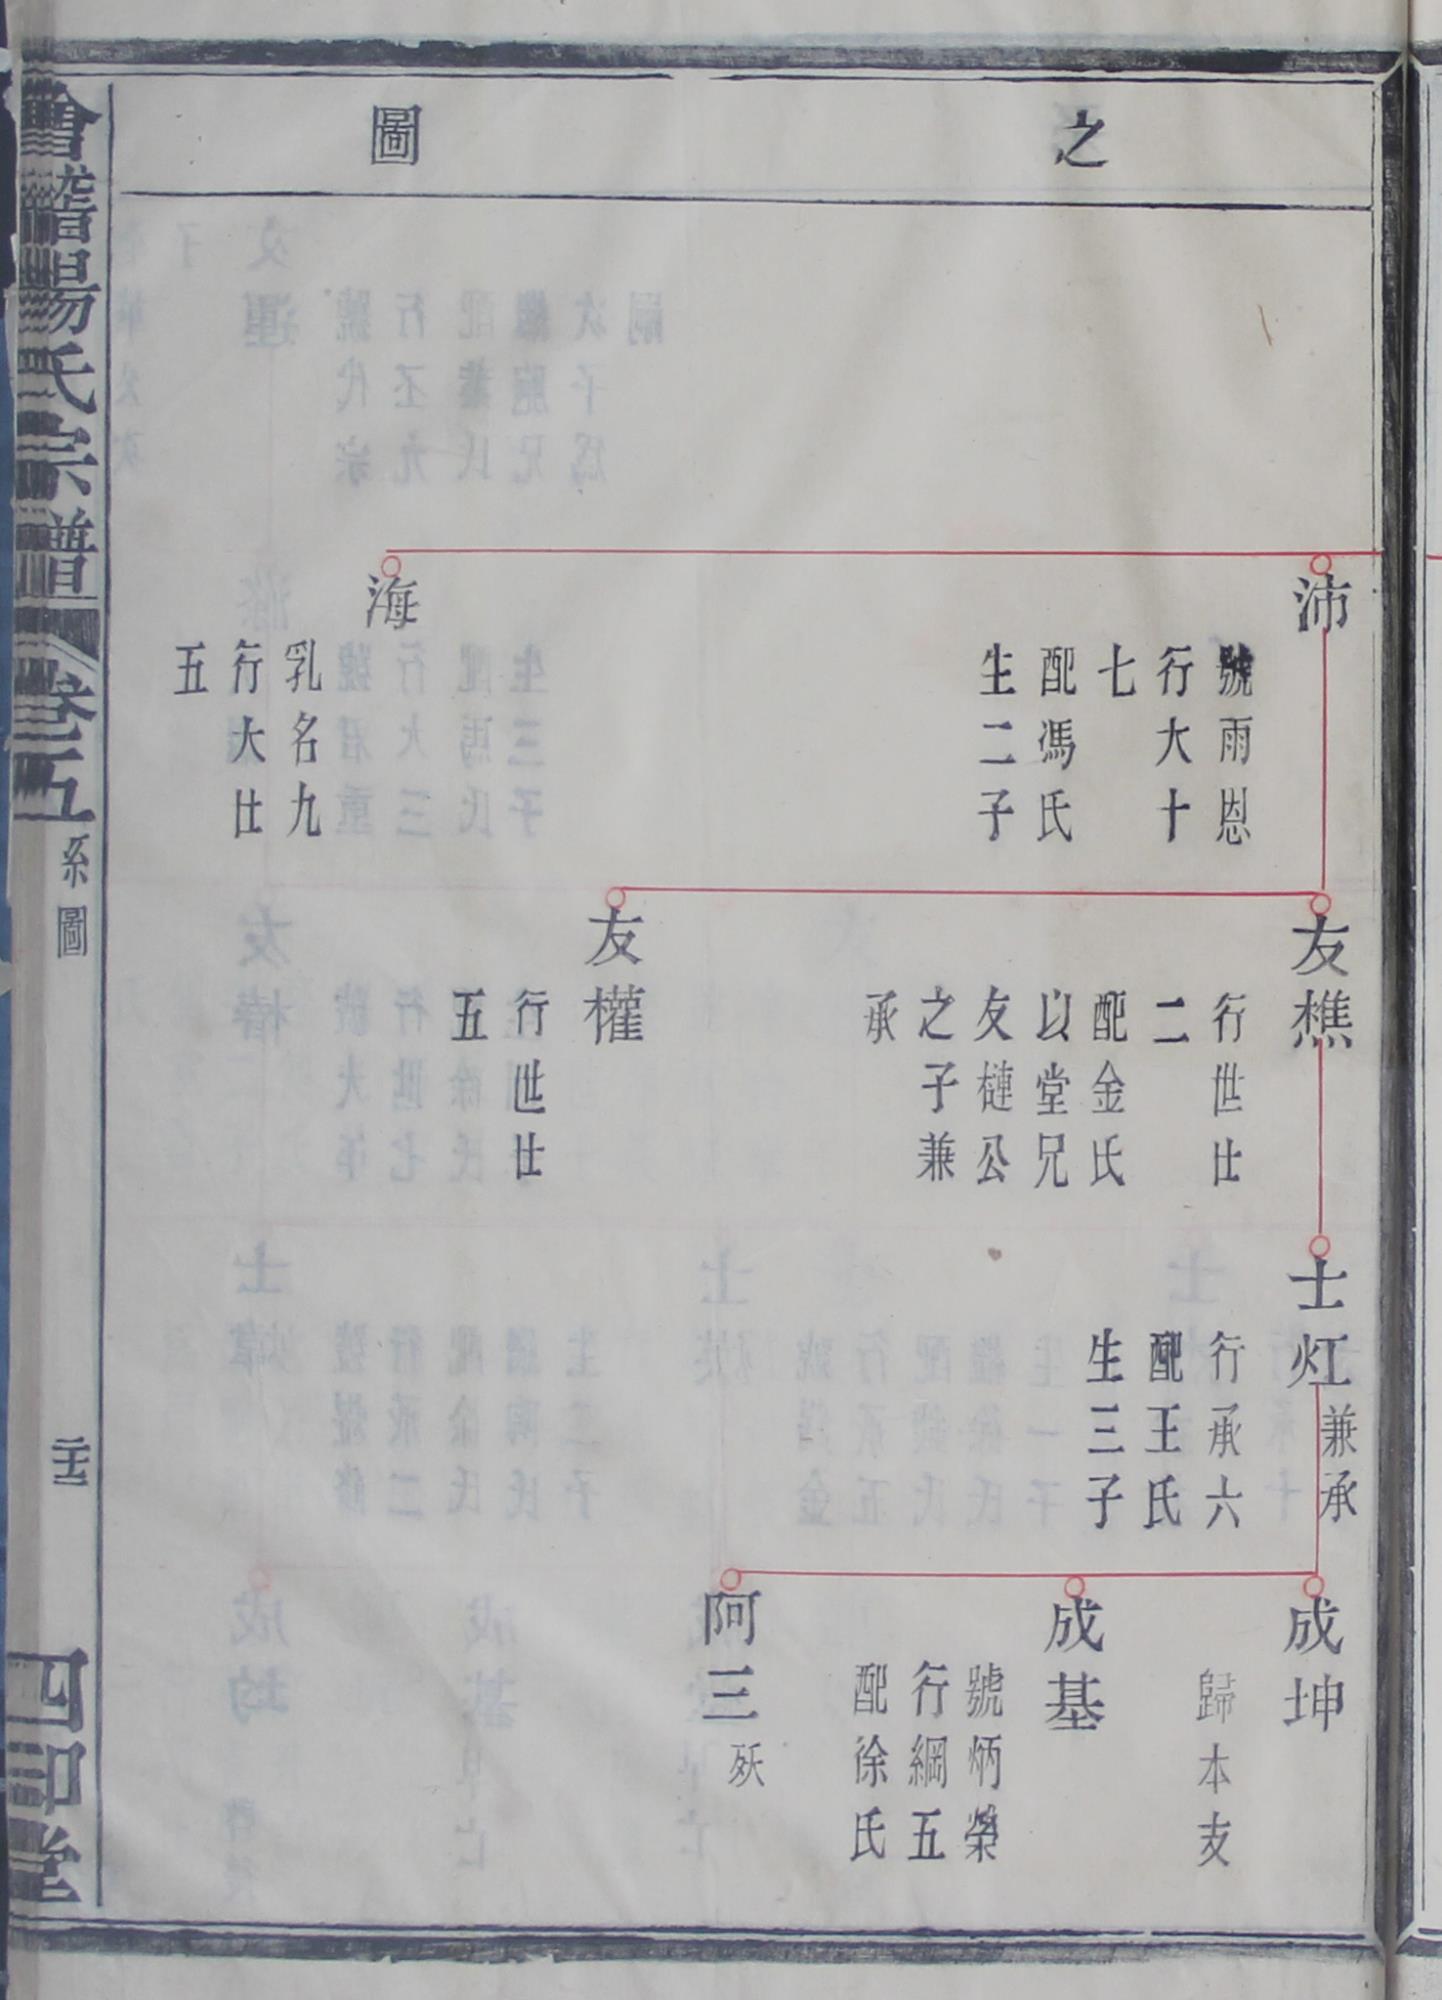 之
圖
沛
號雨恩
行大十
七
配馮氏
生二子
海
乳名九
行大廿
五
友樵
行世廿
二
配金氏
以堂兄
友槤公
之子兼
承
友權
行世廿
五
士灴
兼承
行承六
配王氏
生三子
成坤
歸本支
成基
號炳榮
行綱五
配徐氏
阿三
殀
會稽楊氏宗譜
卷五
系圖
四知堂